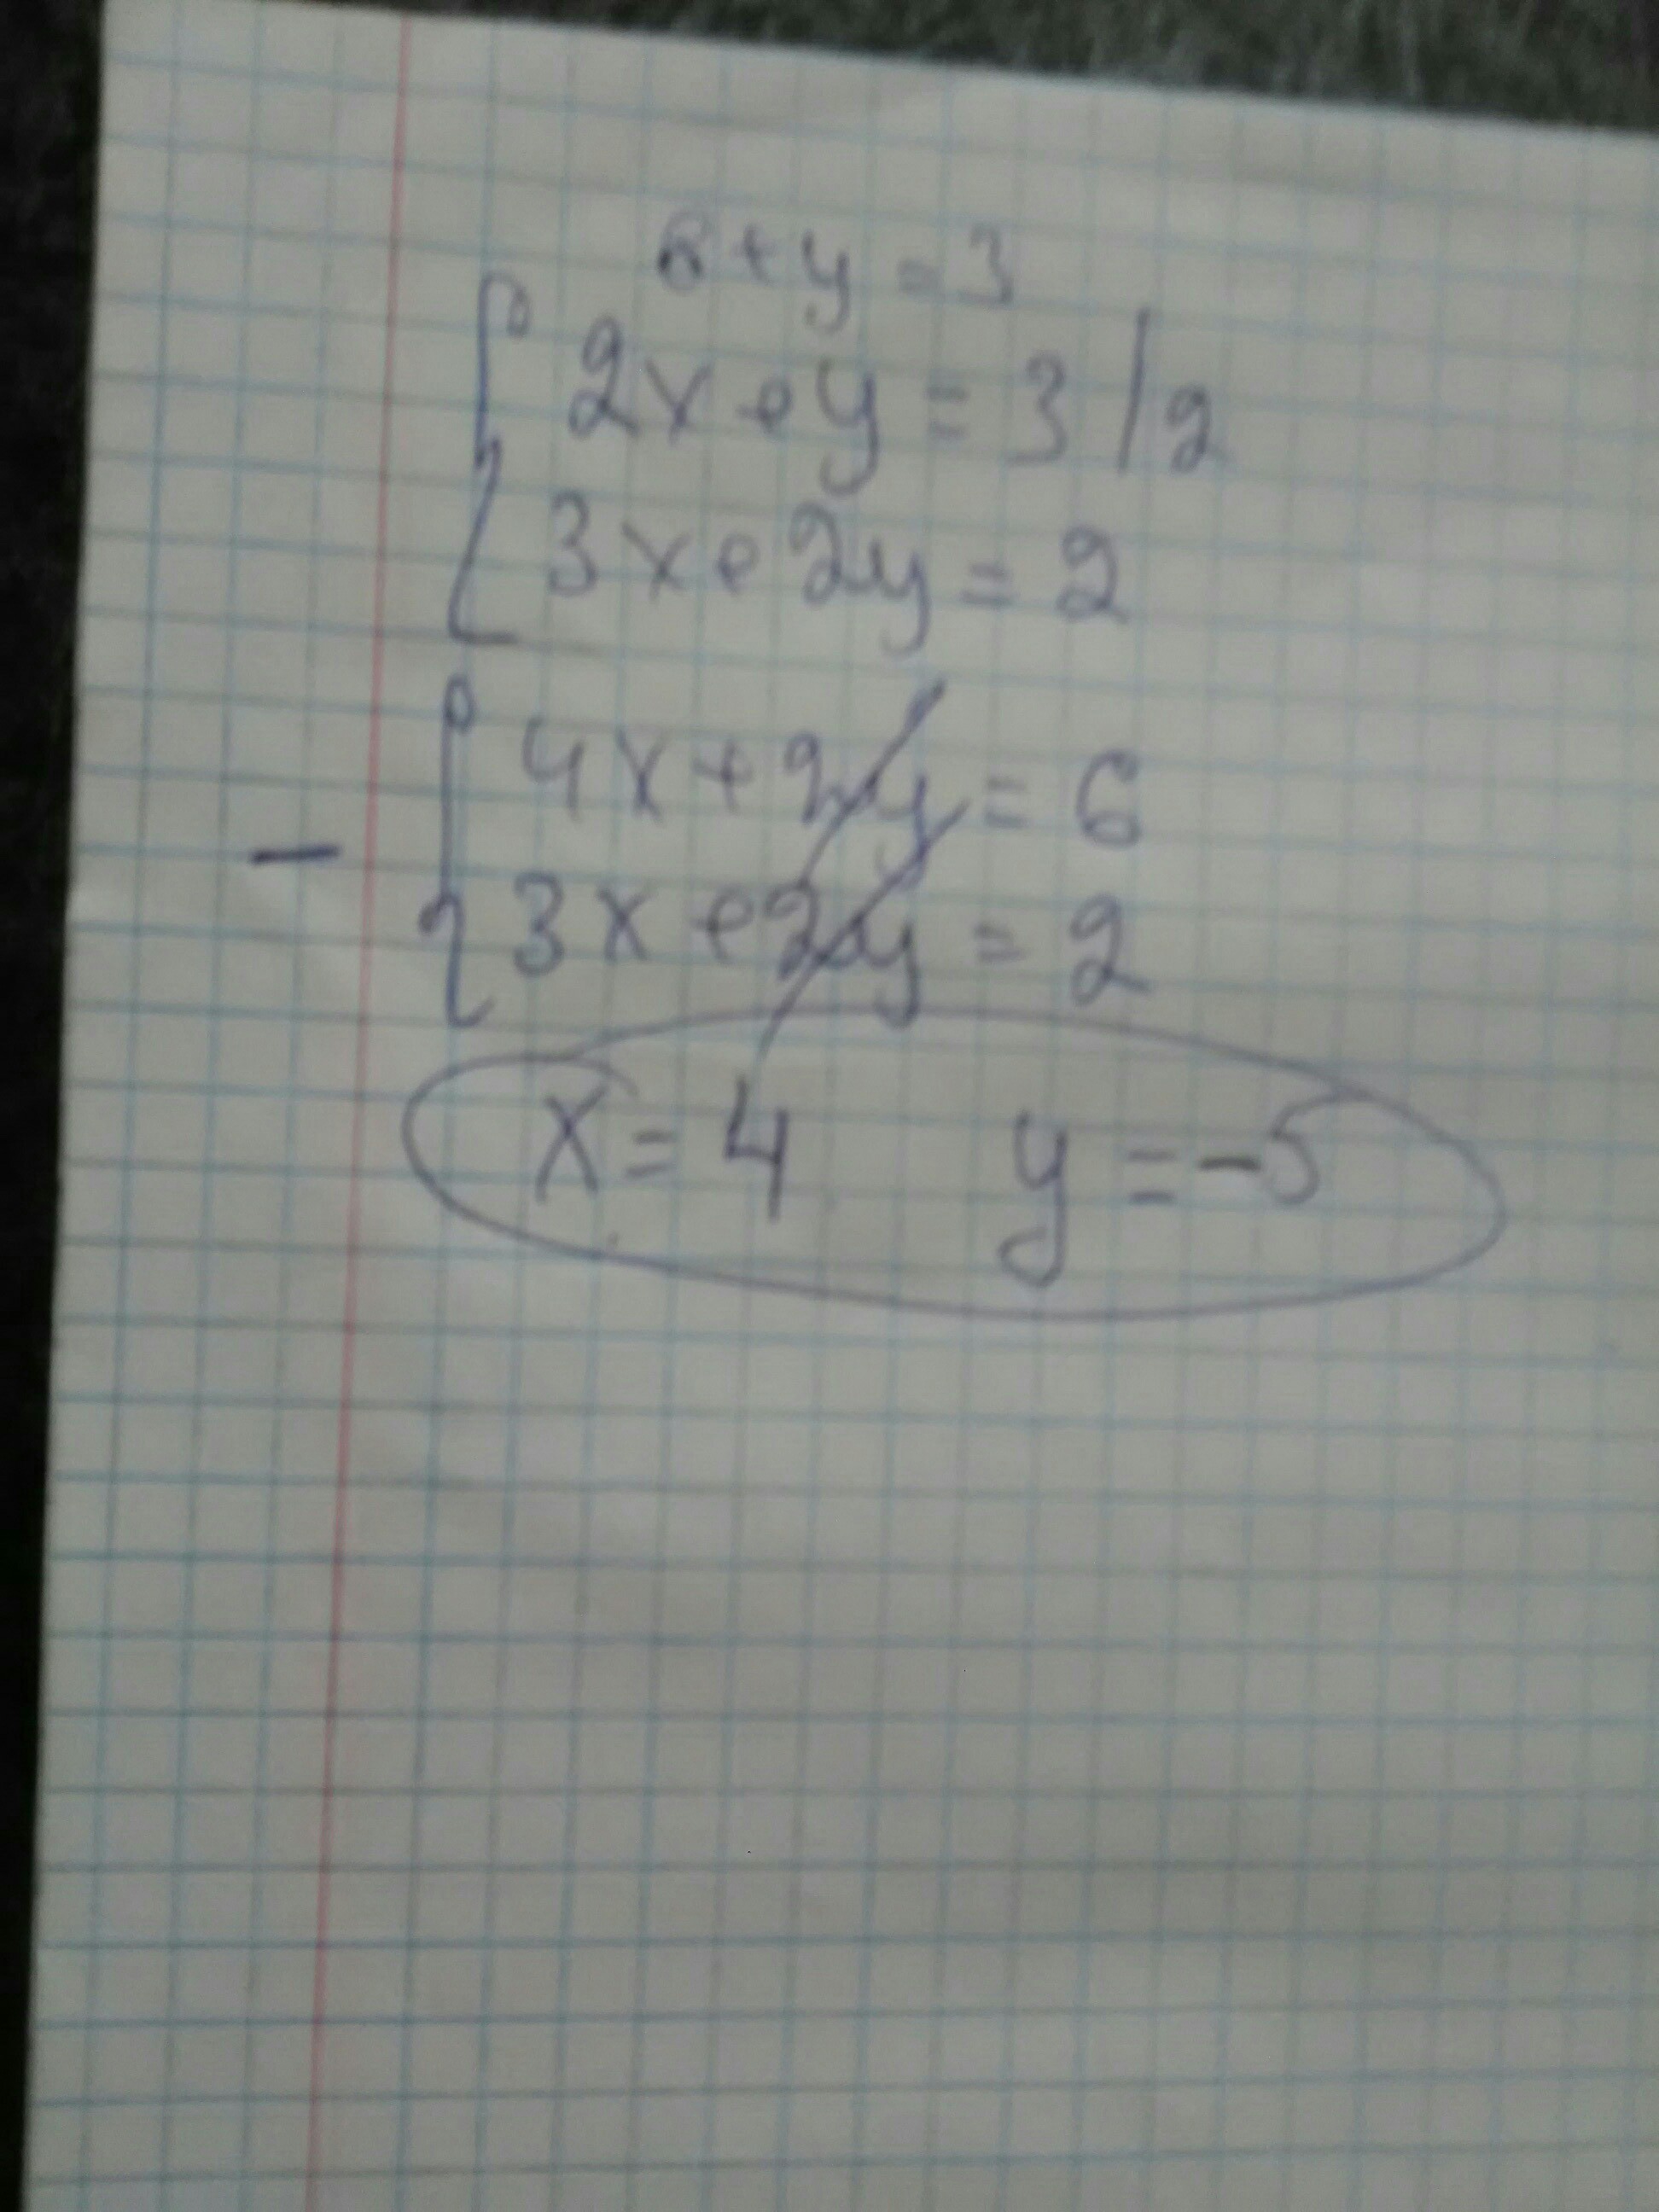 8+y=3
2x+y=3/2
3x+2y=2
4x+2y=6
-
3x+2y=2
x=4 y=-5